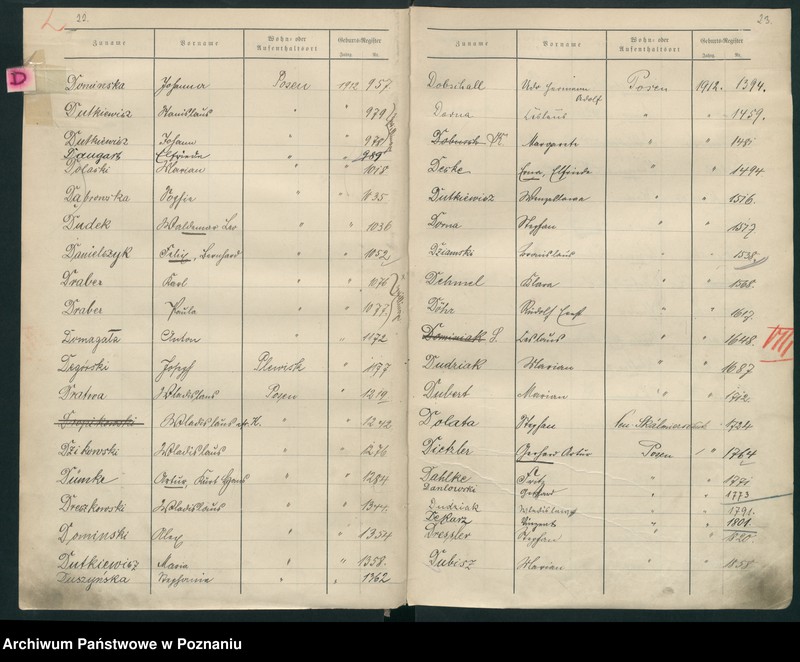 22.
Zuname Vorname Wohn- oder Aufenthaltsort Geburts-Register
Jahrg. Nr.
D
Dominska Johanna Posen 1912 957
Dutkiewicz Stanislaus " " 979
Dutkiewicz Johann " " 978
Daugars Elfriede " " 989
Dolaski Marian " " 1018
Dąbrowska Sophie " " 1035
Dudek Waldemar Leo " " 1036
Danielczyk Felix, Bernhard " " 1052
Draber Karl " " 1076
Draber Paula " " 1077
Domagała Anton " " 1172
Degórski Joseph Plewisk " 1177
Dratwa Wladislaus Posen " 1219
Wladislaus " " 1242
Dzikowski Wladislaus " " 1276
Dümke Artur, Kurt Hans " " 1284
Dreczkowski Wladislaus " " 1344
Dominski Alex " " 1354
Dutkiewicz Maria " " 1358
Duszyńska Stephanie " " 1362
23.
Zuname Vorname Wohn- oder Aufenthaltsort Geburts-Register
Jahrg. Nr.
Dobschall Udo Hermann Adolf Posen 1912. 1394.
Dorna " " 1459.
Margarete " " 1481
Deske Erna, Elfriede " " 1494
Dutkiewicz " " 1516.
Dorna Stephan " " 1517
Dziamski Bronislaus " " 1538.
Dehmel Klara " " 1568.
Döhr Rudolf " " 1617.
Dominiak S. Ceslaus " " 1648. VIII
Dudziak Marian " " 1687
Dubert Marian " " 1712
Dolata Stephan 1724
Dickler Gerhard Artur Posen " 1764
Dahlke Fritz " " 1771
Danlowski Gerhard " " 1773
Dudziak Wladislaus " " 1791.
Dekarz Vincent " " 1801
Dressler Stephan " " 1820.
Dubisz Marian " " 1858.
Archiwum Państwowe w Poznaniu